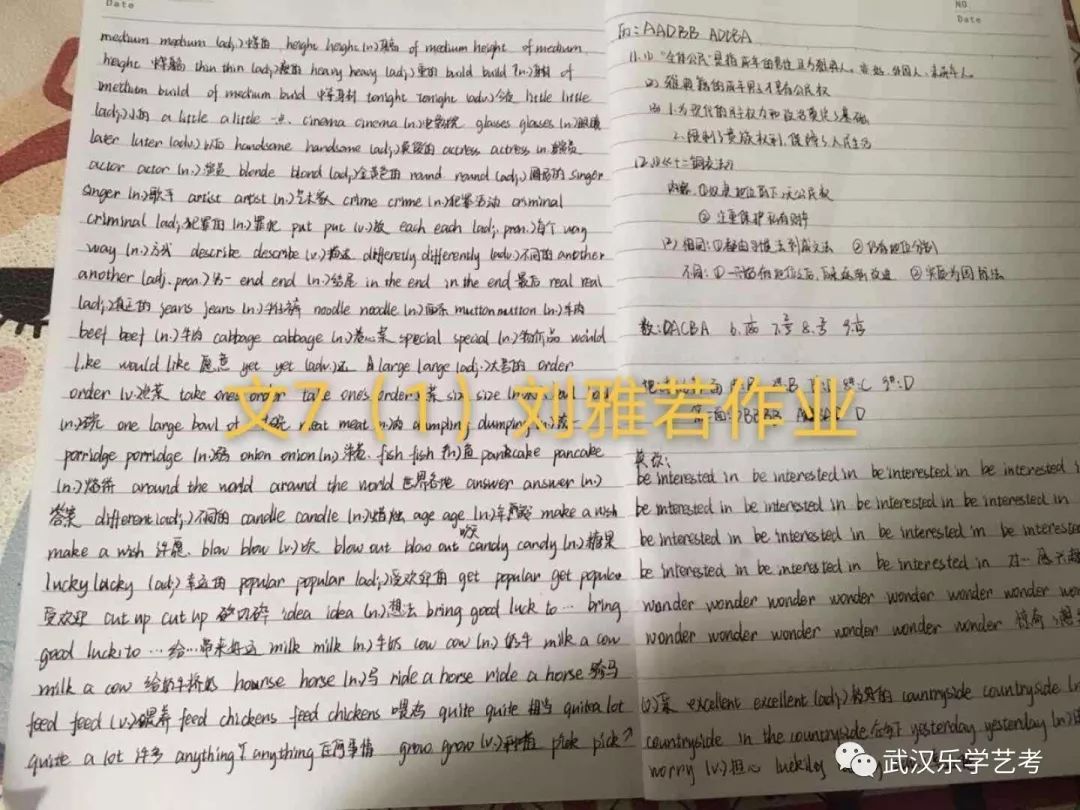 Date
medium medium (adj.) 中等的 height height (n.) 身高 of medium height of medium
height 中等身高 thin thin (adj.) 瘦的 heavy heavy (adj.) 重的 build build (n.) 身材 of
medium build of medium build 中等身材 tonight tonight (adv.) 今夜 little little
(adj.) 小的 a little a little 一点 cinema cinema (n.) 电影院 glasses glasses (n.) 眼镜
later later (adv.) 以后 handsome handsome (adj.) 英俊的 actress actress n. 女演员
actor actor (n.) 演员 blonde blond (adj.) 金黄色的 round round (adj.) 圆形的 singer
singer (n.) 歌手 artist artist (n.) 艺术家 crime crime (n.) 犯罪活动 criminal
criminal (adj.) 犯罪的 (n.) 罪犯 put put (v.) 放 each each (adj. pron.) 每个 way
way (n.) 方式 describe describe (v.) 描述 differently differently (adv.) 不同的 another
another (adj. pron.) 另一 end end (n.) 结尾 in the end in the end 最后 real real
(adj.) 真正的 jeans jeans (n.) 牛仔裤 noodle noodle (n.) 面条 mutton mutton (n.) 羊肉
beef beef (n.) 牛肉 cabbage cabbage (n.) 卷心菜 special special (n.) 特价品 would
like would like 愿意 yet yet (adv.) 还 large large (adj.) 大号的 order
order (v.) 点菜 take one's order take one's order 点菜 size size
(n.) 碗 one large bowl of 一大碗 meat meat (n.) 肉 dumpling dumpling (n.) 饺子
porridge porridge (n.) 粥 onion onion (n.) 洋葱 fish fish (n.) 鱼 pancake pancake
(n.) 烙饼 around the world around the world 世界各地 answer answer (n.)
答案 different (adj.) 不同的 candle candle (n.) 蜡烛 age age (n.) 年龄 make a wish
make a wish 许愿 blow blow (v.) 吹 blow out blow out 吹灭 candy candy (n.) 糖果
lucky lucky (adj.) 幸运的 popular popular (adj.) 受欢迎的 get popular get popular
受欢迎 cut up cut up 切碎 idea idea (n.) 想法 bring good luck to … bring
good luck to … 给…带来好运 milk milk (n.) 牛奶 cow cow (n.) 奶牛 milk a cow
milk a cow 给奶牛挤奶 horse horse (n.) 马 ride a horse ride a horse 骑马
feed feed (v.) 喂养 feed chickens feed chickens 喂鸡 quite quite 相当 quite a lot
quite a lot 许多 anything anything 任何事情 grow grow (v.) 种植 pick pick
NO
Date
历: AADBB ADCBA
11. (1) "全体公民"是指成年的男性且为雅典人。
(2) 雅典籍的成年男子才具有公民权
(3) 1.为现代的民主权力和政治奠定了基础
2.限制了贵族权利,保障了人民生活
12. (1)《十二铜表法》
内容: ① 奴隶地位低下,无公民权
② 注重保护私有财产
(2) 相同: ①都由习惯法到成文法
不同: ①
数: DACBA 6. 7. 8. 9.
D
英改:
be interested in be interested in be interested in be interested
be interested in be interested in be interested in be interested in
be interested in be interested in be interested in be interested
be interested in be interested in be interested in 对…感兴趣
wonder wonder wonder wonder wonder wonder wonder wonder
wonder wonder wonder wonder wonder wonder wonder 惊奇
(v.) 采 excellent excellent (adj.) 极好的 countryside countryside
countryside in the countryside 在乡下 yesterday yesterday (n.)
worry (v.) 担心 luckily
文7（1）刘雅若作业
武汉乐学艺考